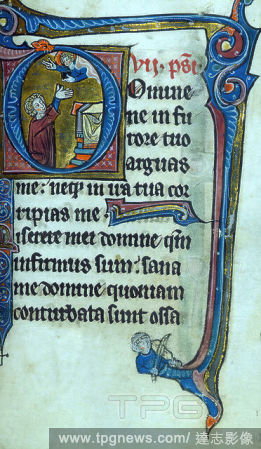 vii. psī.
Domine
ne in fu
rore tuo
arguas
me: neqȝ in ira tua cor
ripias me.
Miserere mei domine qm̄
infirmus sum: sana
me domine quoniam
conturbata sunt ossa
TPG
www.tpgnews.com/ 達志影像